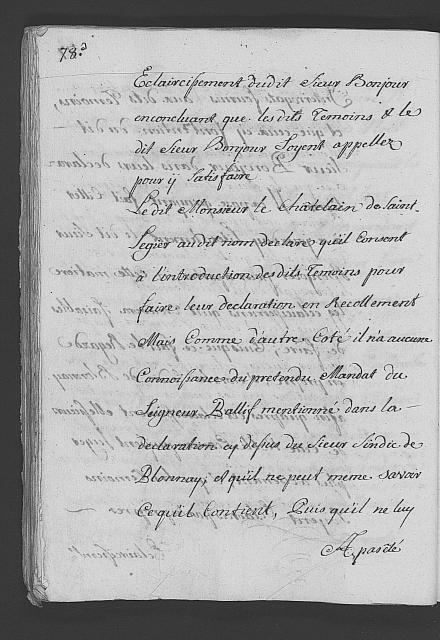 78.
Eclaircissement dudit Sieur Bonjour
enconcluant que les dits Temoins & le
dit Sieur Bonjour Soyent appellez
pour ÿ Satisfaire
Le dit Monsieur le Chatelain de Saint
Legier audit nom declare qu'il Consent
à l'introduction des dits Temoins pour
faire leur declaration en Recollement
Mais Comme d'autre Coté il n'a aucune
Connoissance du pretendu Mandat du
Seigneur Ballif mentionné dans la
declaration cy desus du Sieur Sindic de
Blonnay; et qu'il ne peut meme savoir
Ce qu'il Contient, Puis qu'il ne luy
pas été